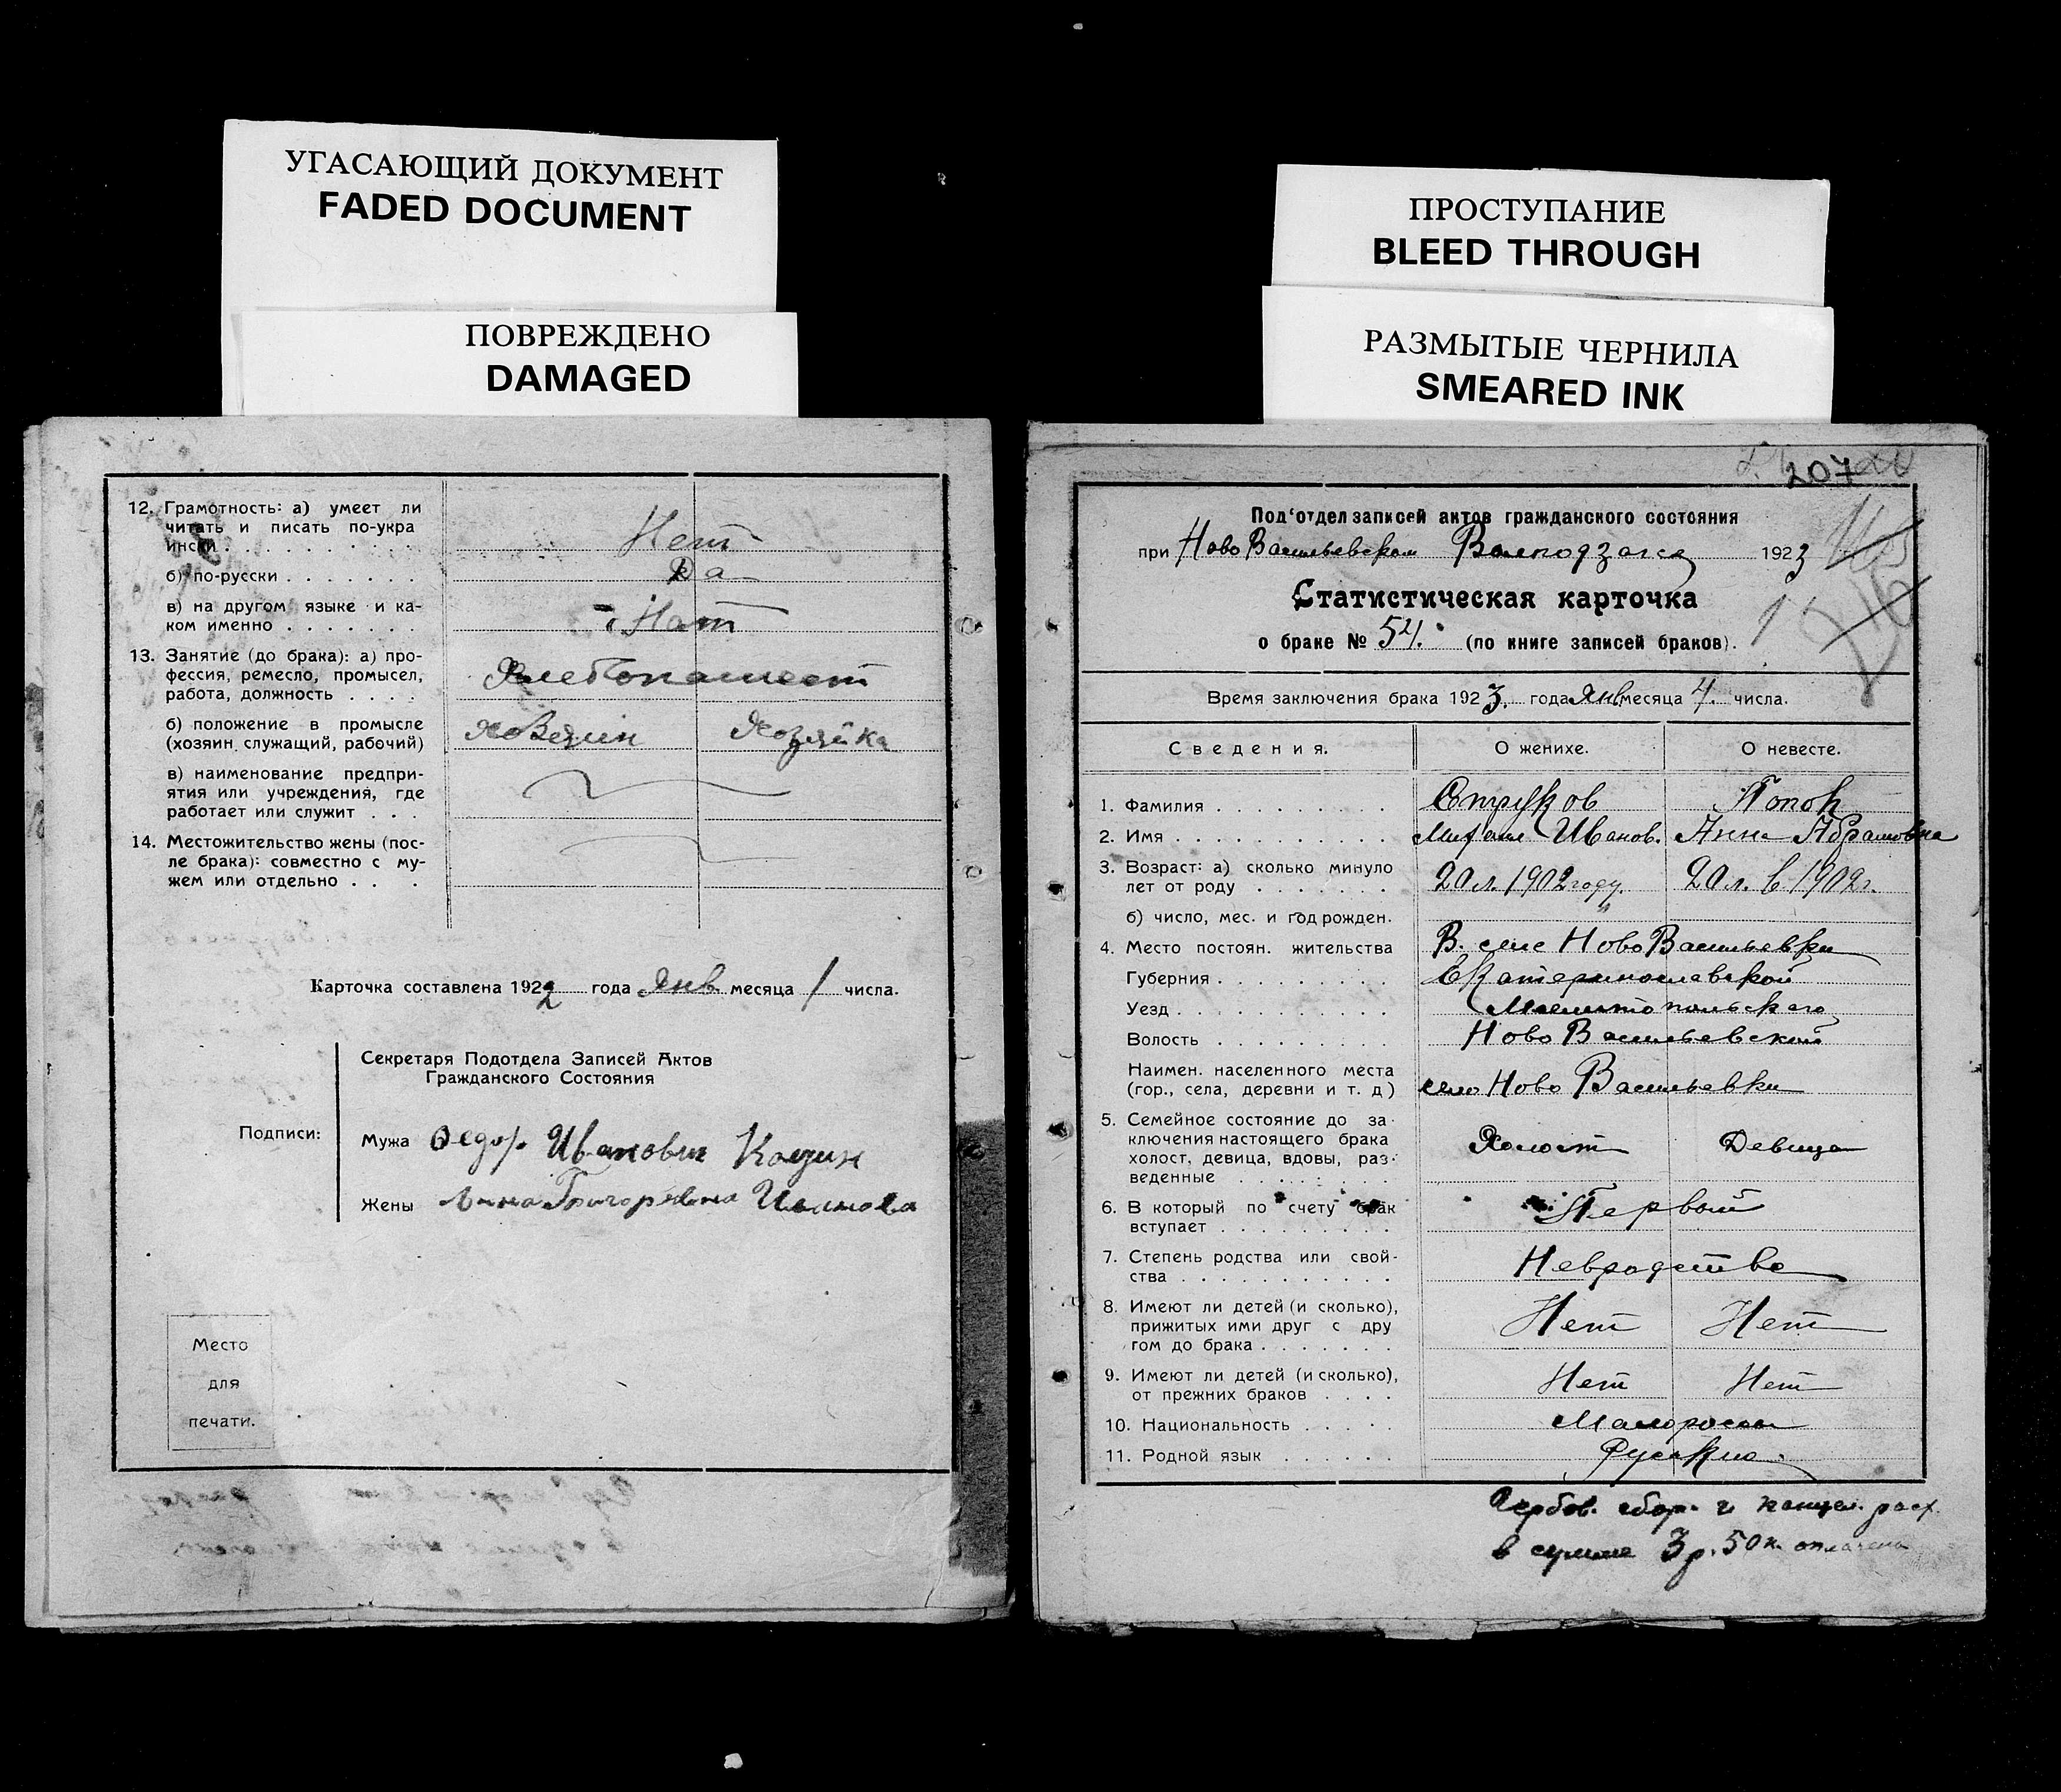 УГАСАЮЩИЙ ДОКУМЕНТ
FADED DOCUMENT
ПОВРЕЖДЕНО
DAMAGED
12. Грамотность: а) умеет ли
читать и писать по-укра
ински . . . . . . . . . . Нет
б) по-русски . . . . . . . Да
в) на другом языке и ка-
ком именно . . . . . . . Нет
13. Занятие (до брака): а) про-
фессия, ремесло, промысел,
работа, должность . . . .
б) положение в промысле
(хозяин, служащий, рабочий) Хозяин Хозяйка
в) наименование предпри-
ятия или учреждения, где
работает или служит . . .
14. Местожительство жены (пос-
ле брака): совместно с му-
жем или отдельно . . . .
Карточка составлена 1922 года Янв. месяца 1 числа.
Секретаря Подотдела Записей Актов
Гражданского Состояния
Подписи:
Мужа Федор Иванович
Жены Анна Григоревна Иванова
Место
для
печати.
ПРОСТУПАНИЕ
BLEED THROUGH
РАЗМЫТЫЕ ЧЕРНИЛА
SMEARED INK
207
Под'отдел записей актов гражданского состояния
при Ново Васильевском Волподзагсе 1923
Статистическая карточка
о браке № 54. (по книге записей браков).
Время заключения брака 1923. года Янв месяца 4. числа.
Сведения. О женихе. О невесте.
1. Фамилия . . . . . . . . . Струков Попок
2. Имя . . . . . . . . . . . Михаил Иванов. Анна Абрамовна
3. Возраст: а) сколько минуло
лет от роду . . . . . . . 20 л. 1902 году. 20 л. в 1902 г.
б) число, мес. и год рожден.
4. Место постоян. жительства В. селе Ново Васильевки
Губерния . . . . . . . . . Екатеринославской
Уезд . . . . . . . . . . . Мелитопольского
Волость . . . . . . . . . Ново Васильевской
Наимен. населенного места
(гор., села, деревни и т. д) село Ново Васильевки
5. Семейное состояние до за-
ключения настоящего брака
холост, девица, вдовы, раз-
веденные . . . . . . . Холост Девица
6. В который по счету брак
вступает . . . . . . . . . Первый
7. Степень родства или свой-
ства . . . . . . . . . . . Невродстве
8. Имеют ли детей (и сколько),
прижитых ими друг с дру
гом до брака . . . . . . . Нет Нет
9. Имеют ли детей (и сколько),
от прежних браков . . . . Нет Нет
10. Национальность . . . . Малоросы
11. Родной язык . . . . . .
Гербов. сбор. и канцел. расх.
в сумме 3 р. 50 к. оплачена